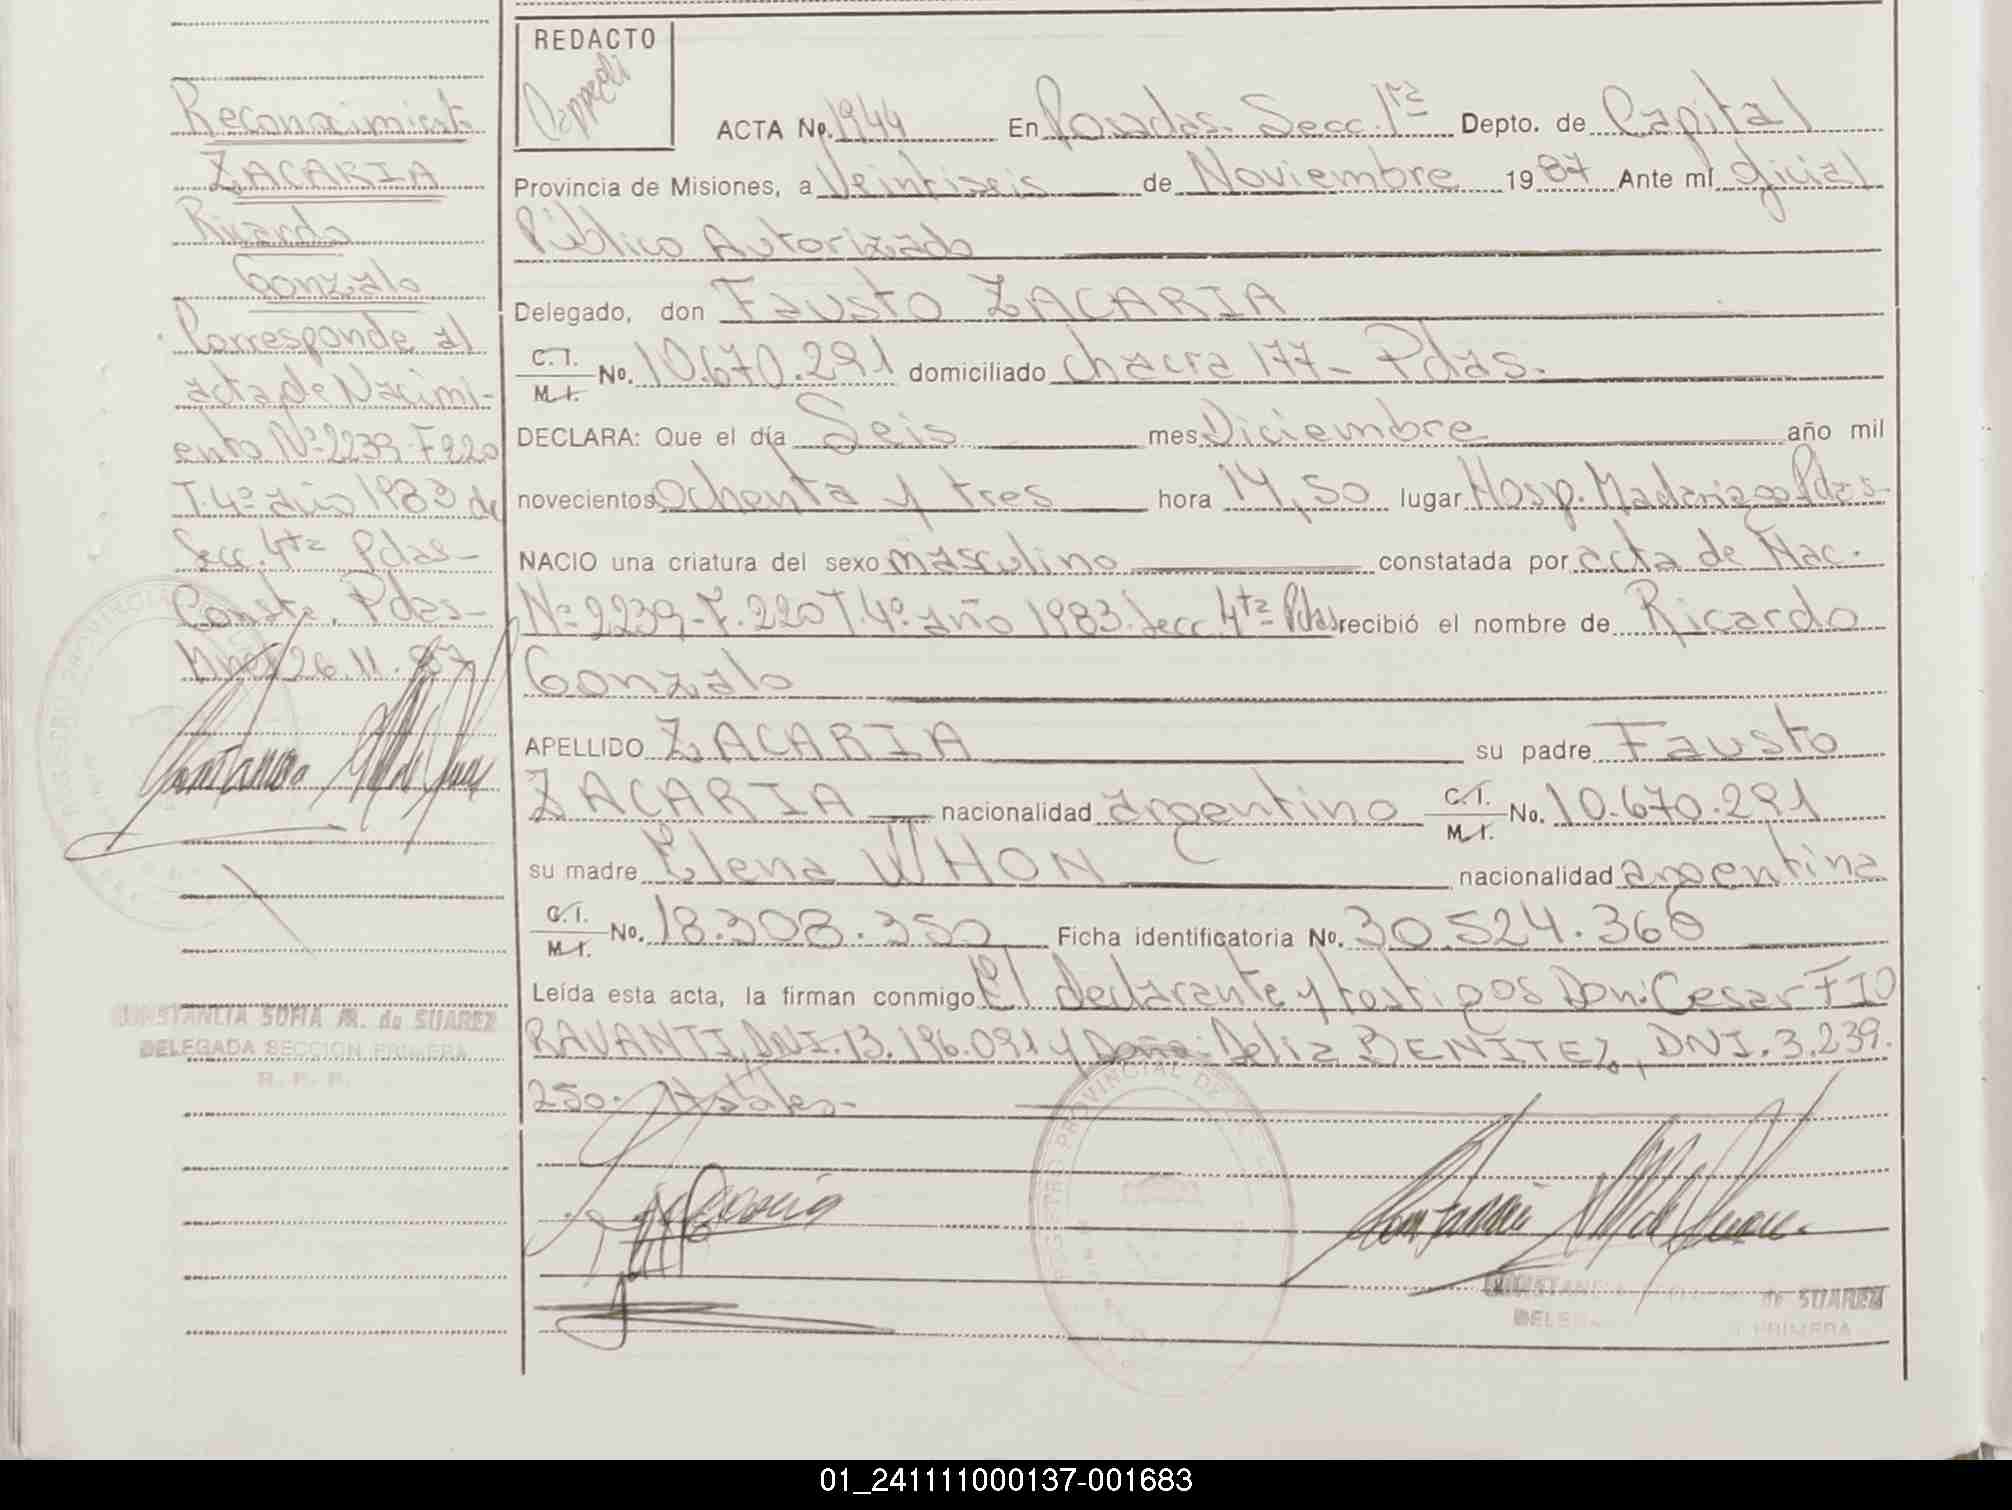 Reconocimiento
ZACARIA
Ricardo
Gonzalo
Corresponde al
acta de Nacimi-
ento Nº 2239-F220
T.4º año 1983 de
Secc. 4ta Pdas-
Conste. Pdas-
Mnes 26.11.87
CONSTANCIA SOFIA M. de SUAREZ
DELEGADA SECCION PRIMERA
R. P. P.
REDACTO
ACTA No. 1944 En Posadas. Secc. 1ra Depto. de Capital
Provincia de Misiones, a Veintiseis de Noviembre 1987 Ante mí Oficial
Público Autorizado
Delegado, don Fausto ZACARIA
C.I.
M.I. No. 10.670.291 domiciliado chacra 177- Pdas.
DECLARA: Que el día Seis mes Diciembre año mil
novecientos ochenta y tres hora 14,50 lugar Hosp. Madariaga Pdas-
NACIO una criatura del sexo masculino constatada por acta de Nac.
Nº 2239-F.220 T.4º año 1983. Secc. 4ta Pdas recibió el nombre de Ricardo
Gonzalo
APELLIDO ZACARIA su padre Fausto
ZACARIA nacionalidad argentino C.I.
M.I. No. 10.670.291
su madre Elena WHON nacionalidad argentina
C.I.
M.I. No. 18.308.350 Ficha identificatoria No. 30.524.366
Leída esta acta, la firman conmigo El declarante y testigos Don: Cesar FIO
RAVANTI, DNI. 13.196.091 y Doña: Delia BENITEZ, DNI. 3.239.
250.
REGISTRO PROVINCIAL DE
de SUAREZ
PRIMERA
01_241111000137-001683